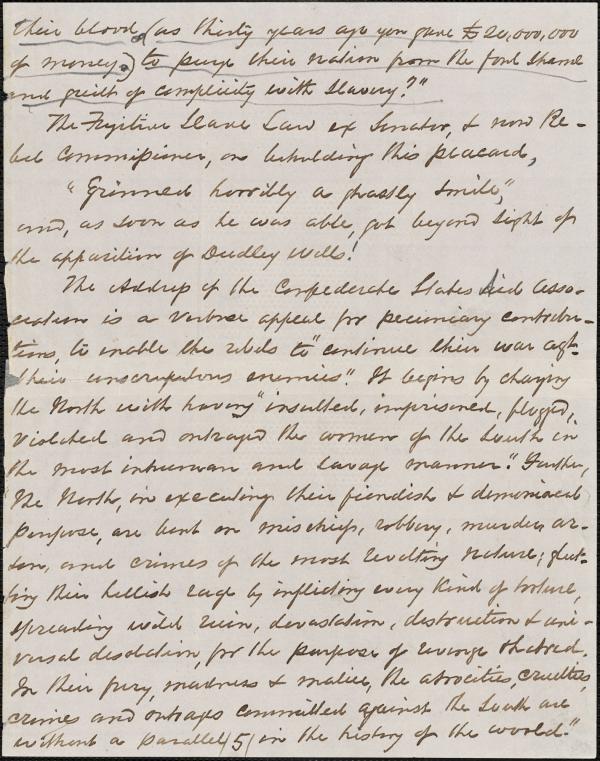 their blood, (as thirty years ago you gave £20,000,000
of money,) to purge their nation from the foul shame
and guilt of complicity with Slavery?"
The Fugitive Slave Law ex Senator, & now Re-
bel Commissioner, on beholding this placard,
"Grinned horribly a ghastly smile",
and, as soon as he was able, got beyond sight of
the apparition of Dudley Wells!
The Address of the Confederate States Aid Asso-
ciation is a verbose appeal for pecuniary contribu-
tions, to enable the rebels to "continue their war agt-
their unscrupulous enemies". It begins by charging
the North with having "insulted, imprisoned, flogged,
violated and outraged the women of the South in
the most inhuman and savage manner". Further,
"The North, in executing their fiendish & demoniacal
purpose, are bent on mischief, robbery, murder, ar-
son, and crimes of the most revolting nature; glut-
ting their hellish rage by inflicting every kind of torture,
spreading wild ruin, devastation, destruction & uni-
versal desolation, for the purpose of revenge & hatred.
In their fury, madness & malice, the atrocities, cruelties,
crimes and outrages committed against the South are
without a parallel (5) in the history of the world."